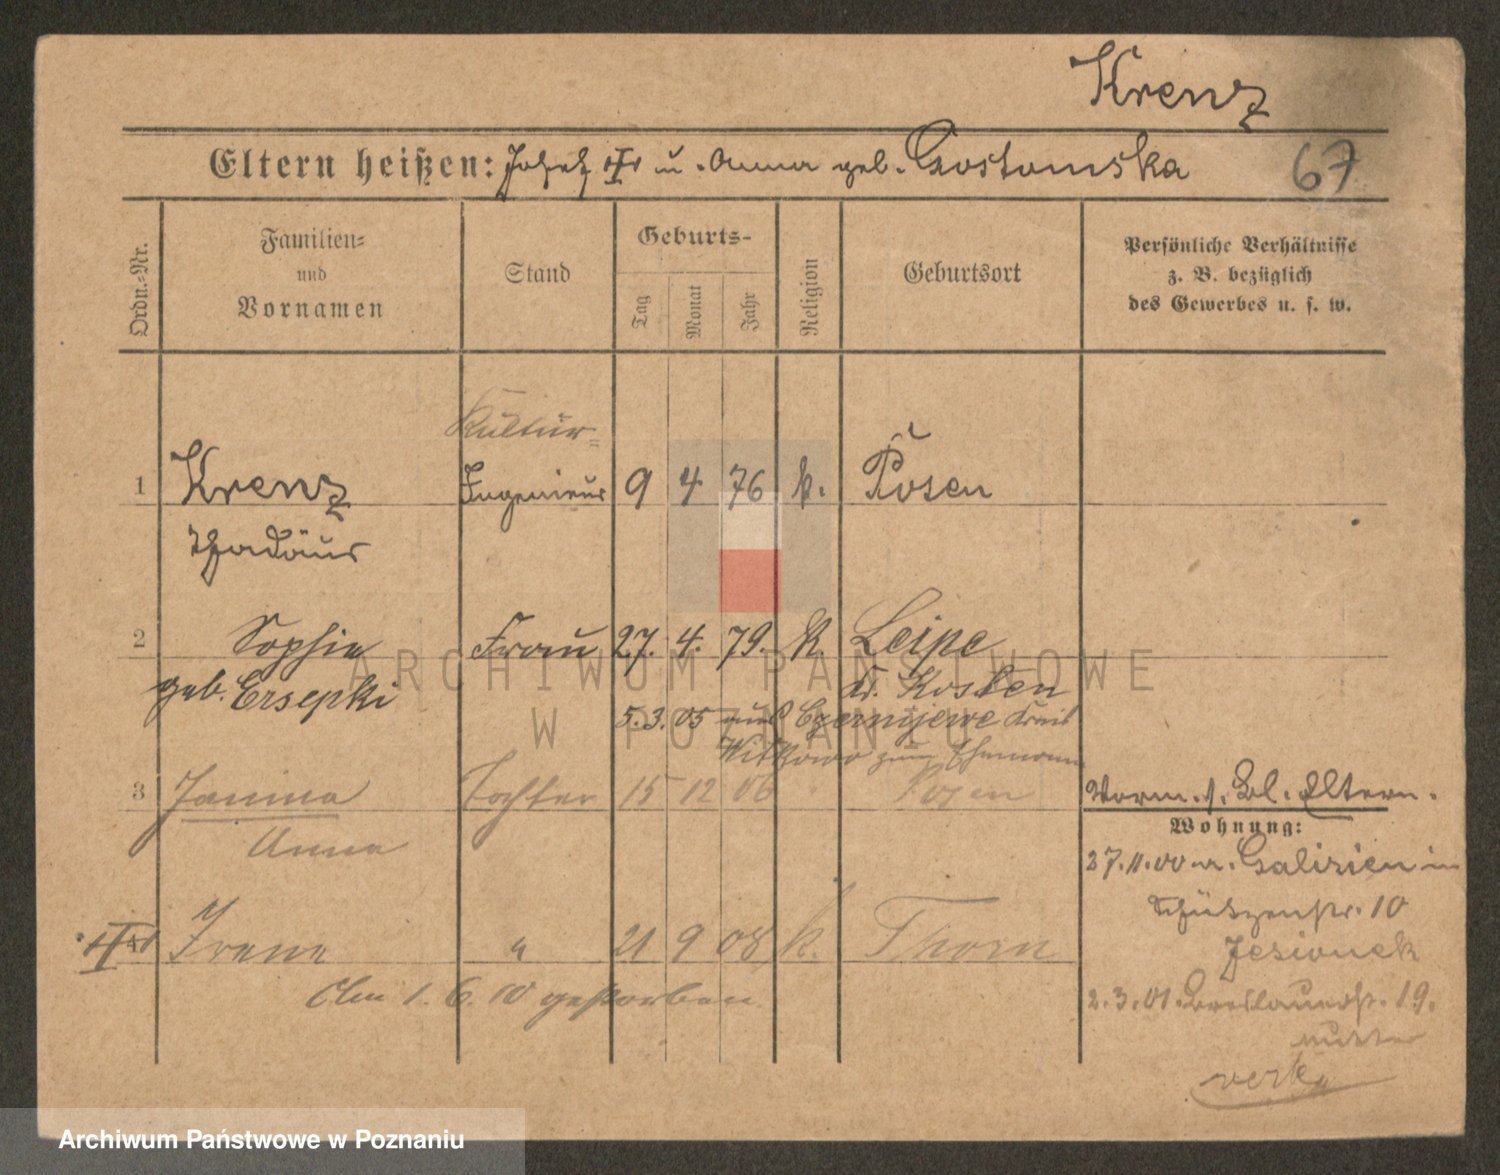 Krenz
Eltern heißen: Josef u. Anna geb. Gostomska
67
Ordn.-Nr.
Familien-
und
Vornamen
Stand
Geburts-
Tag
Monat
Jahr
Religion
Geburtsort
Persönliche Verhältnisse
z. B. bezüglich
des Gewerbes u. s. w.
Kultur-
1 Krenz Ingenieur 9 4 76 k. Posen
Thadäus
2 Sophie Frau 27. 4. 79. k. Leipe
geb. Ersepki Kr. Kosten
5.3.05 aus Czerniejewo Kreis
Witkowo zum Ehemann
3 Janina Tochter 15 12 06 " Posen
Anna
Vorm. s. Bl. Eltern.
Wohnung:
27.11.00 Galizien in
Schützenstr. 10
Jesionek
2.3.01. Breslauerstr. 19.
4 Irene " 21 9 08 k. Thorn
Am 1. 6. 10 gestorben.
ARCHIWUM PAŃSTWOWE
W POZNANIU
Archiwum Państwowe w Poznaniu